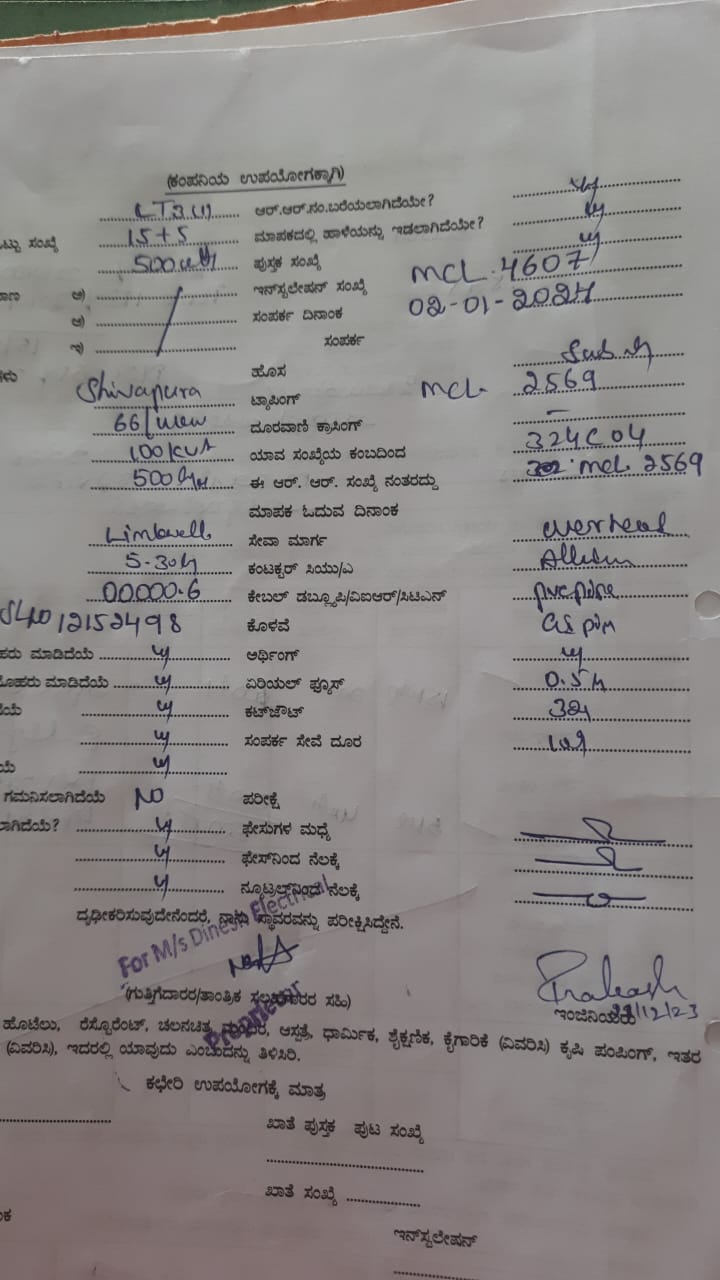 (ಕಂಪನಿಯ ಉಪಯೋಗಕ್ಕಾಗಿ)
LT3(1) ಆರ್.ಆರ್.ನಂ.ಬರೆಯಲಾಗಿದೆಯೇ?
ಟ್ಟು ಸಂಖ್ಯೆ 15+5 ಮಾಪಕದಲ್ಲಿ ಹಾಳೆಯನ್ನು ಇಡಲಾಗಿದೆಯೇ?
500 ಪುಸ್ತಕ ಸಂಖ್ಯೆ
ಅ) ಇನ್‌ಸ್ಟಲೇಷನ್ ಸಂಖ್ಯೆ MCL.4607
ಆ) ಸಂಪರ್ಕ ದಿನಾಂಕ 02-01-2024
ಇ) ಸಂಪರ್ಕ
ಹೊಸ
Shivapura ಟ್ಯಾಪಿಂಗ್ MCL 2569
66/ ದೂರವಾಣಿ ಕ್ರಾಸಿಂಗ್ –
100KVA ಯಾವ ಸಂಖ್ಯೆಯ ಕಂಬದಿಂದ 324C04
500 ಈ ಆರ್. ಆರ್. ಸಂಖ್ಯೆ ನಂತರದ್ದು MCL 2569
ಮಾಪಕ ಓದುವ ದಿನಾಂಕ
ಸೇವಾ ಮಾರ್ಗ overhead
5-30 ಕಂಟಕ್ಟರ್ ಸಿಯು/ಎ
00000.6 ಕೇಬಲ್ ಡಬ್ಲ್ಯೂಪಿ/ವಿಐಆರ್/ಸಿಟಿಎನ್
SLNO 12152498 ಕೊಳವೆ
ಹರು ಮಾಡಿದೆಯೆ ಅರ್ಥಿಂಗ್
ಮಾಡಿದೆಯೆ ಏರಿಯಲ್ ಫ್ಯೂಸ್ 0.5
ಯೆ ಕಟ್‌ಔಟ್ 32
ಸಂಪರ್ಕ ಸೇವೆ ದೂರ
ಯೆ
ಗಮನಿಸಲಾಗಿದೆಯೆ NO ಪರೀಕ್ಷೆ
ಲಾಗಿದೆಯೆ? ಫೇಸುಗಳ ಮಧ್ಯೆ
ಫೇಸ್‌ನಿಂದ ನೆಲಕ್ಕೆ
ನ್ಯೂಟ್ರಲ್‌ನಿಂದ ನೆಲಕ್ಕೆ
ದೃಢೀಕರಿಸುವುದೇನೆಂದರೆ, ನಾನು ಸ್ಥಾವರವನ್ನು ಪರೀಕ್ಷಿಸಿದ್ದೇನೆ.
For M/s Dinesh Electrical
Proprietor
Prakash
(ಗುತ್ತಿಗೆದಾರರ/ತಾಂತ್ರಿಕ ಸಲಹಾಗಾರರ ಸಹಿ) ಇಂಜಿನಿಯರು /12/23
ಹೊಟೆಲು, ರೆಸ್ಟೋರೆಂಟ್, ಚಲನಚಿತ್ರ ಮಂದಿರ, ಆಸ್ಪತ್ರೆ, ಧಾರ್ಮಿಕ, ಶೈಕ್ಷಣಿಕ, ಕೈಗಾರಿಕೆ (ವಿವರಿಸಿ) ಕೃಷಿ ಪಂಪಿಂಗ್, ಇತರ
(ವಿವರಿಸಿ), ಇದರಲ್ಲಿ ಯಾವುದು ಎಂಬುದನ್ನು ತಿಳಿಸಿರಿ.
ಕಛೇರಿ ಉಪಯೋಗಕ್ಕೆ ಮಾತ್ರ
ಖಾತೆ ಪುಸ್ತಕ ಪುಟ ಸಂಖ್ಯೆ
ಖಾತೆ ಸಂಖ್ಯೆ
ಇನ್‌ಸ್ಟಲೇಷನ್